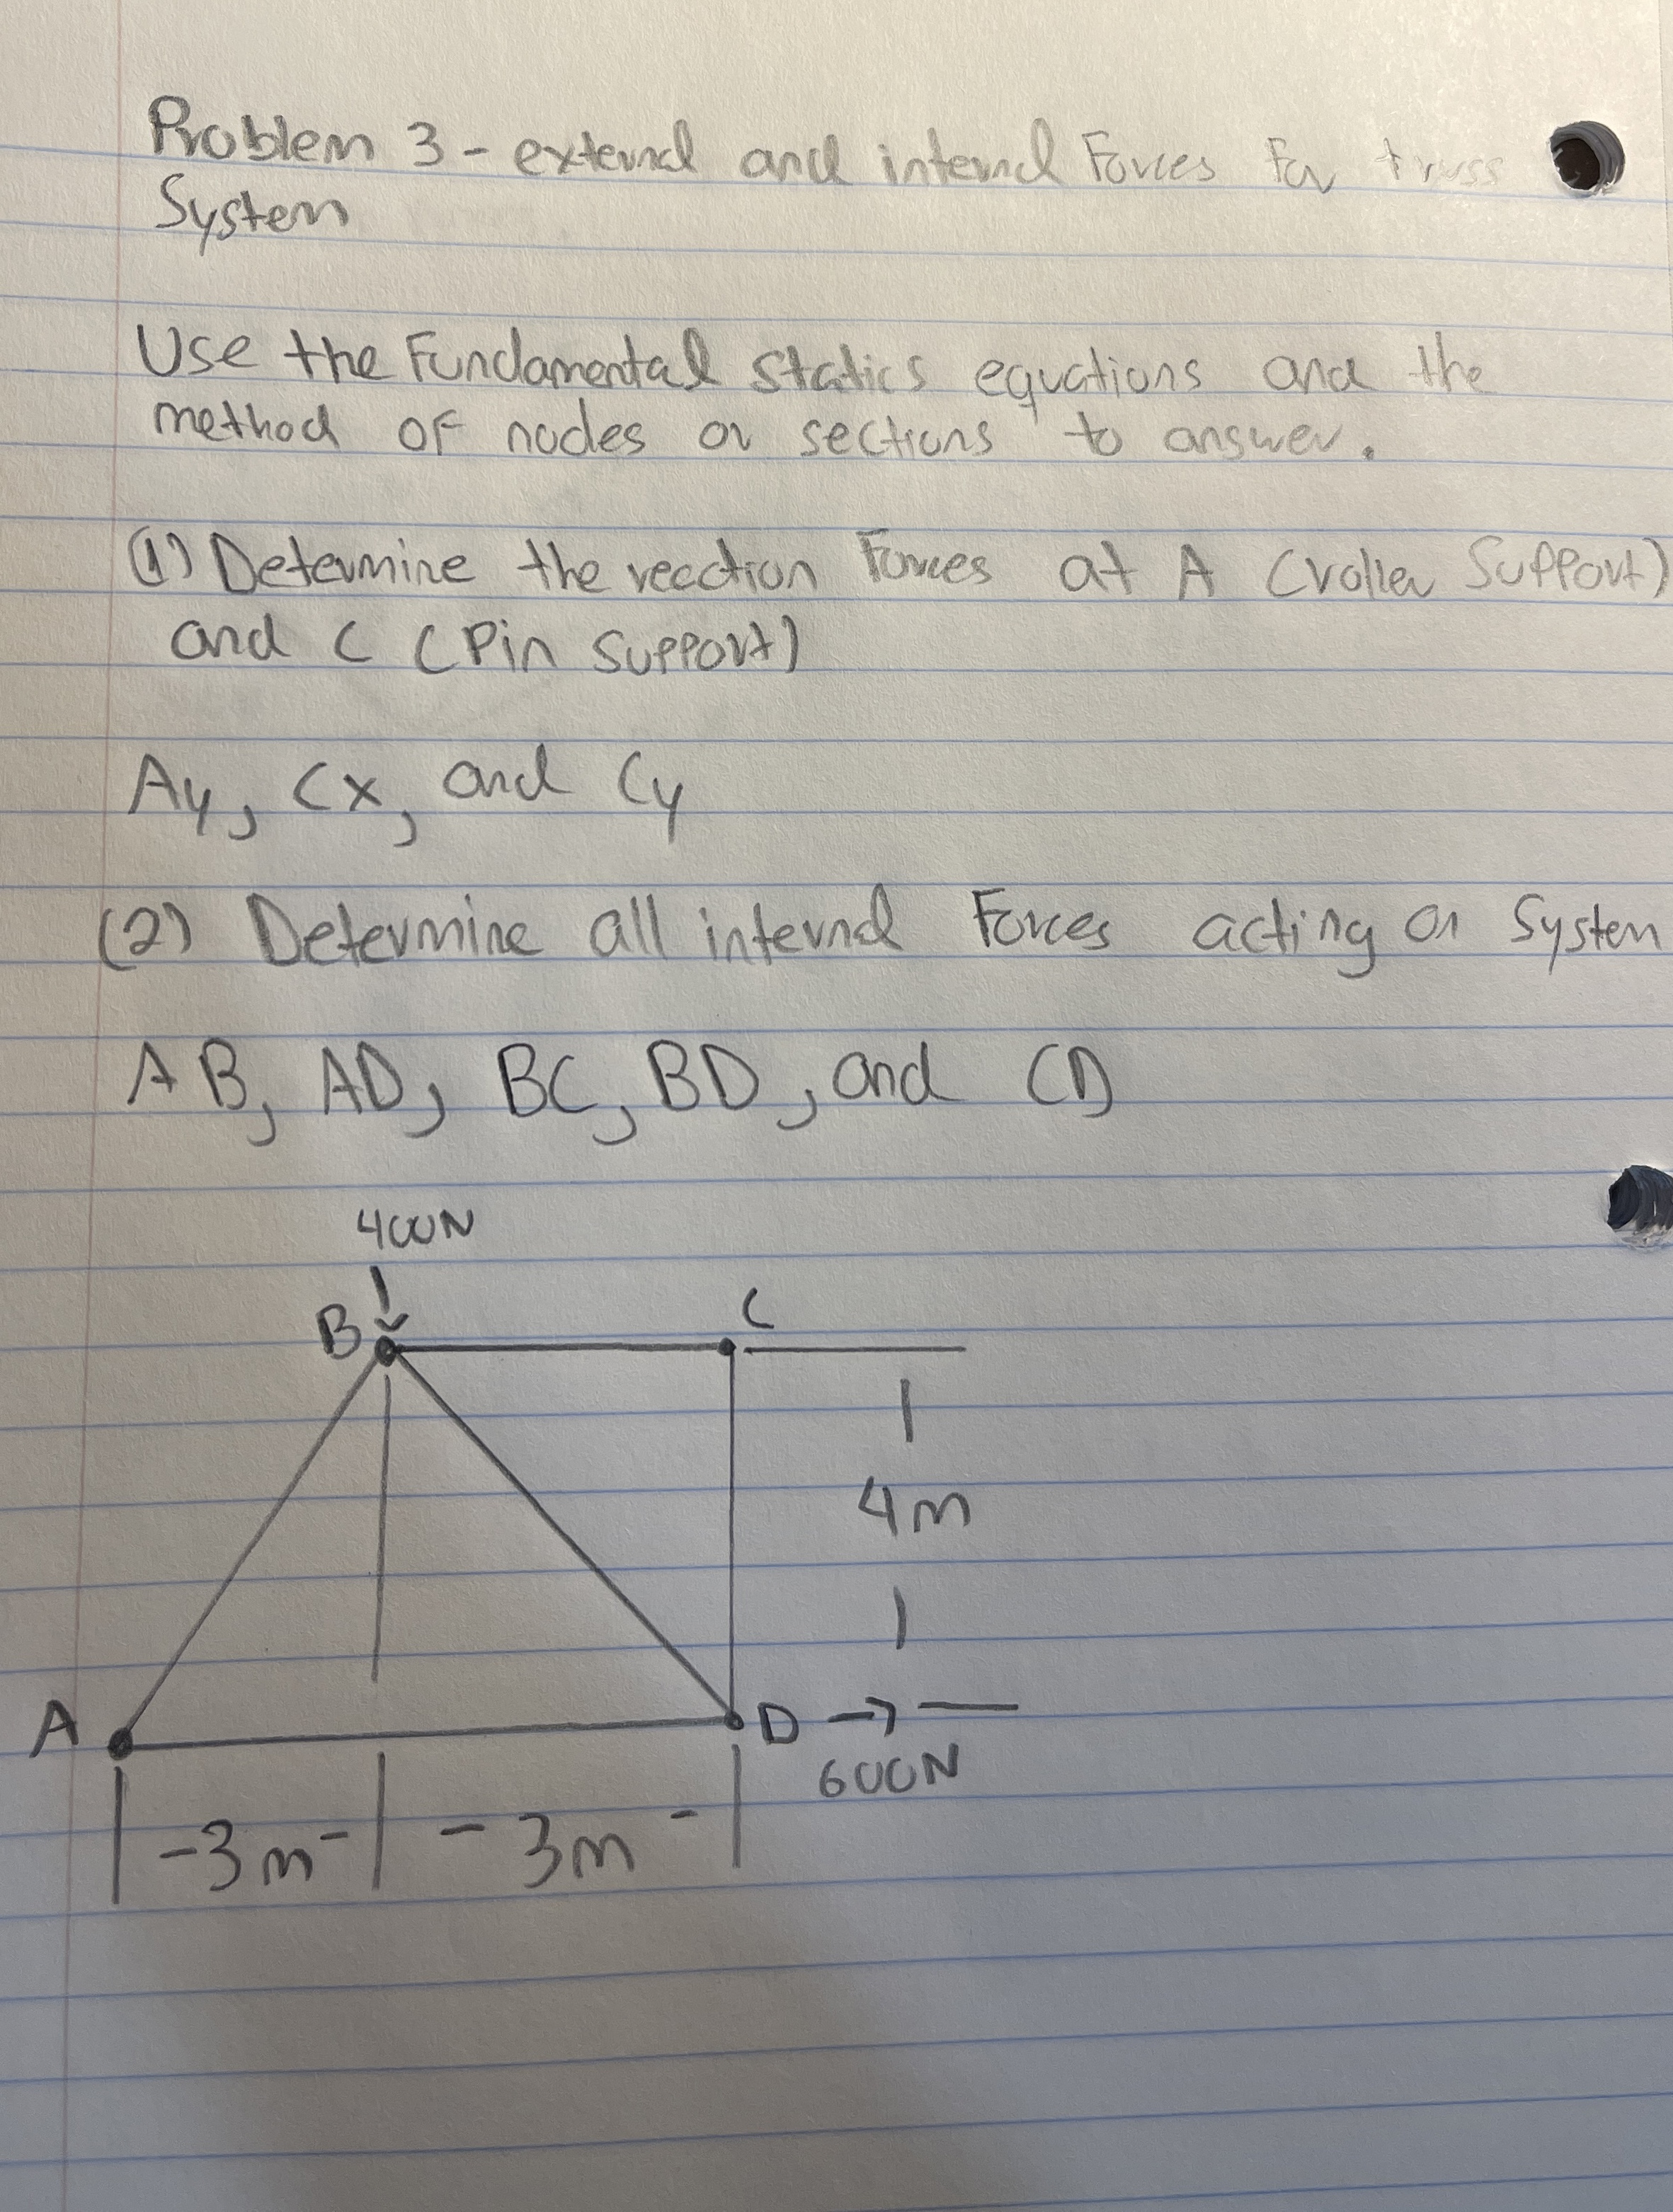 Problem 3 - external and internal Forces for truss
System
Use the Fundamental statics equations and the
method of nodes or sections to answer.
(1) Determine the reection Forces at A (roller Support)
and C (Pin Support)
Ay, Cx, and Cy
(2) Determine all internal Forces acting on System
AB, AD, BC, BD, and CD
400N
B
C
4m
A
D →
600N
-3m- - 3m -